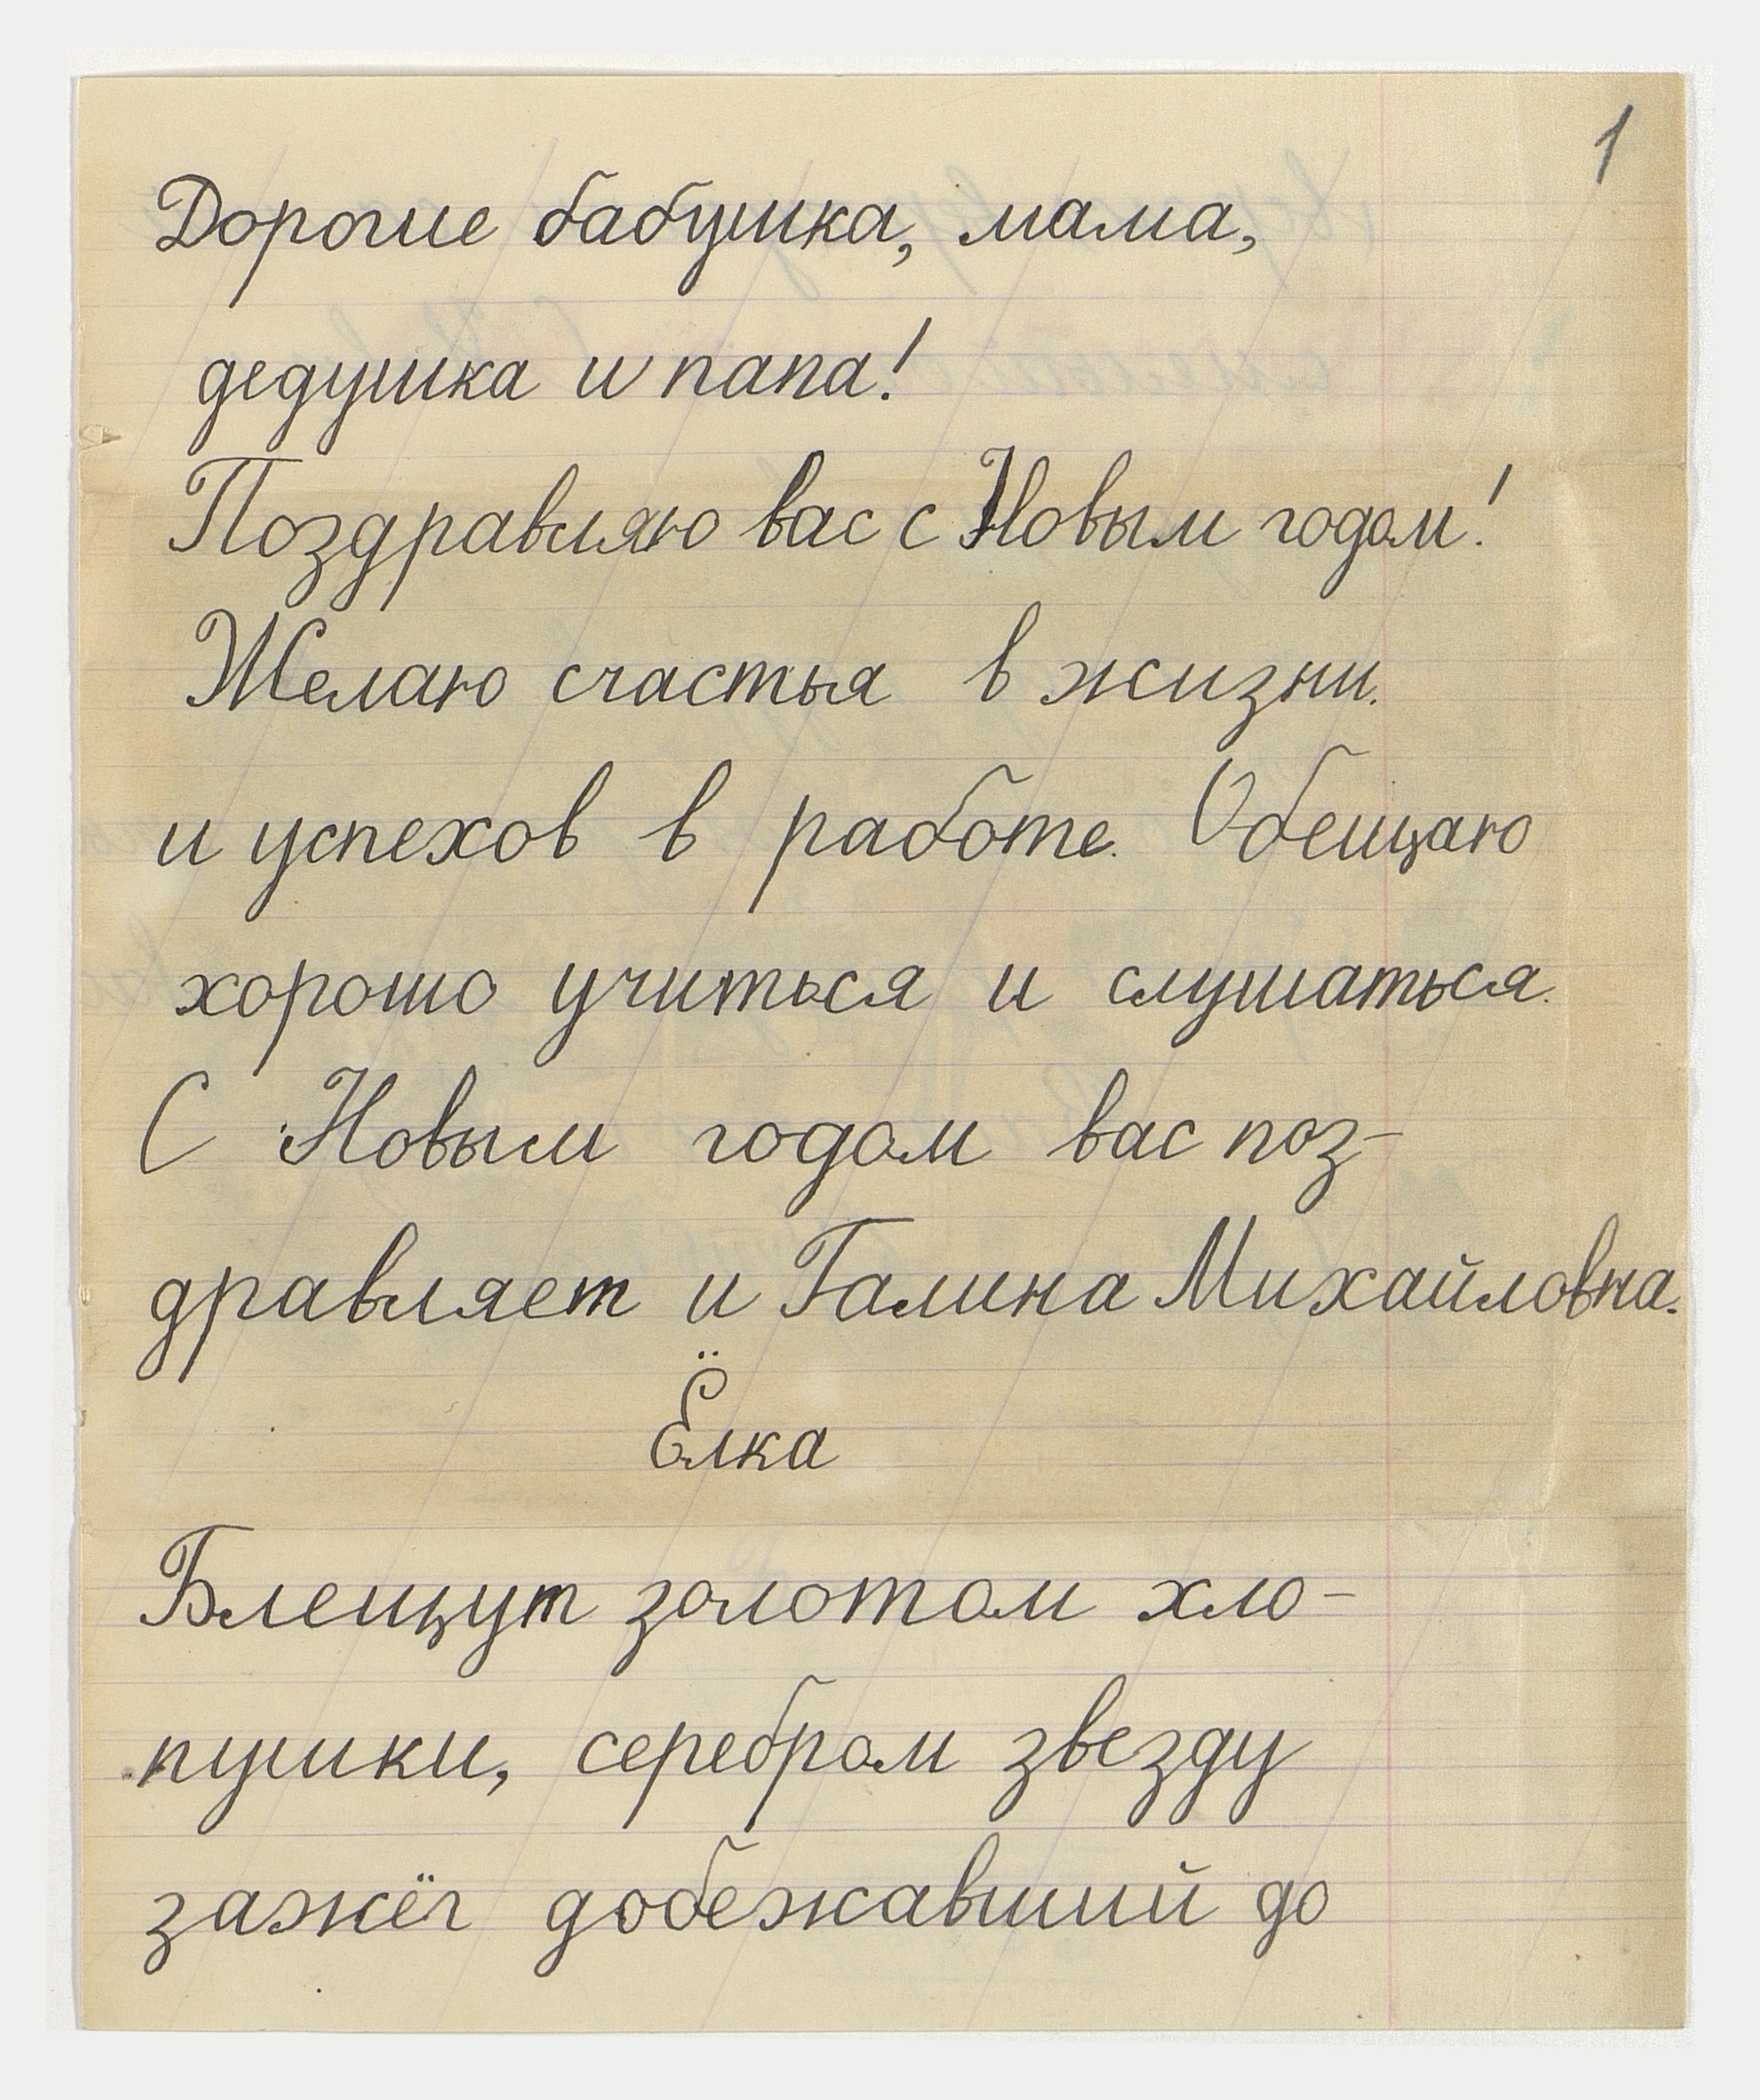 1
Дорогие бабушка, мама,
дедушка и папа!
Поздравляю вас с Новым годом!
Желаю счастья в жизни.
и успехов в работе. Обещаю
хорошо учиться и слушаться.
С Новым годом вас поз-
дравляет и Галина Михайловна.
Ёлка
Блещут золотом хло-
пушки, серебром звезду
зажёг добежавший до